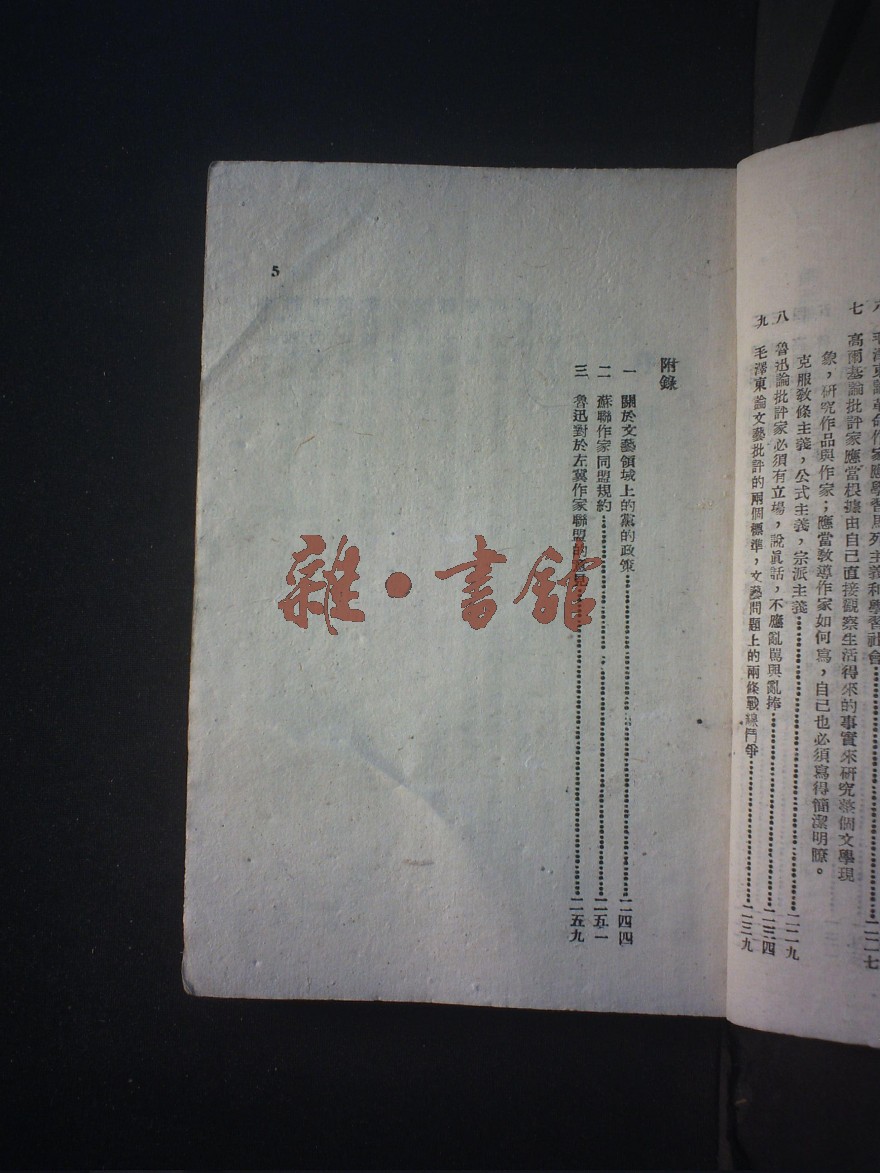 毛澤東論革命作家應學習馬列主義和學習社會……二二七
七 高爾基論批評家應當根據由自己直接觀察生活得來的事實來研究整個文學現
象，研究作品與作家；應當教導作家如何寫，自己也必須寫得簡潔明瞭。
克服教條主義，公式主義，宗派主義……二二九
八 魯迅論批評家必須有立場，說眞話，不應亂罵與亂捧……二三四
九 毛澤東論文藝批評的兩個標準，文藝問題上的兩條戰線鬥爭……二三九
附錄
一 關於文藝領域上的黨的政策……二四四
二 蘇聯作家同盟規約……二五一
三 魯迅對於左翼作家聯盟的意見……二五九
5
雜·書館